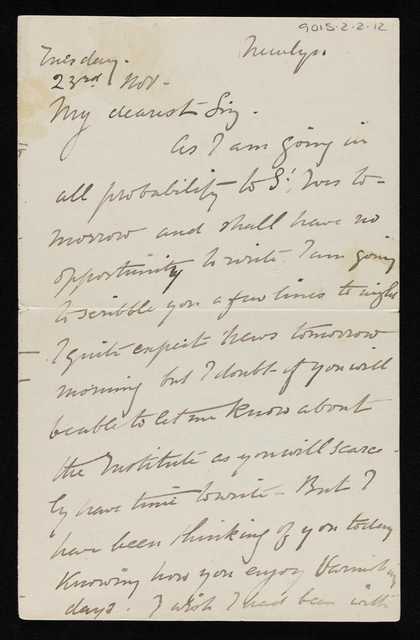 9015-2-2-12
Newlyn.
Tuesday.
23rd Nov-
My dearest Siy.
As I am going in
all probability to St. Ives to-
morrow and shall have no
opportunity to write I am going
to scribble you a few lines to night
I quite expect news tomorrow
morning but I doubt if you will
be able to let me know about
the Institute as you will scarce-
ly have time to write - But I
have been thinking of you today
Knowing how you enjoy Varnishing
days. I wish I had been with